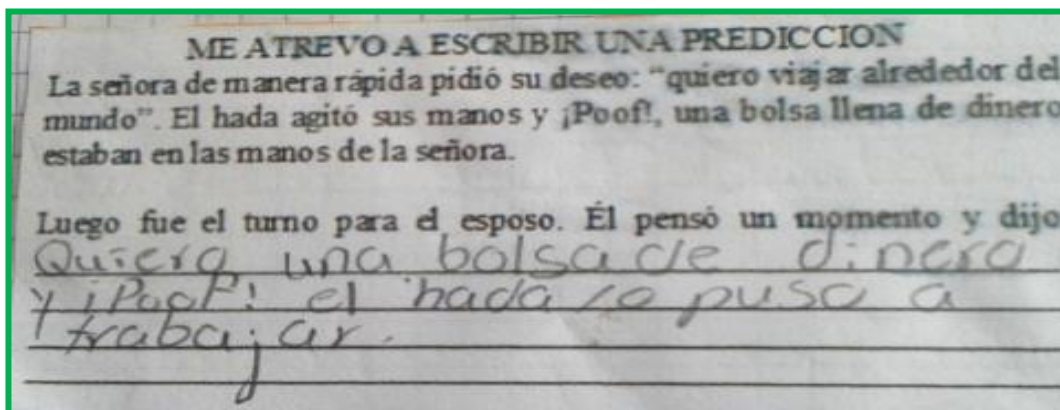 ME ATREVO A ESCRIBIR UNA PREDICCION
La señora de manera rápida pidió su deseo: “quiero viajar alrededor del
mundo”. El hada agitó sus manos y ¡Poof!, una bolsa llena de dinero
estaban en las manos de la señora.
Luego fue el turno para el esposo. Él pensó un momento y dijo
Quiero una bolsa de dinero
y ¡Poof! el hada lo puso a
trabajar.